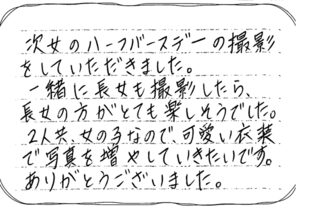 次女のハーフバースデーの撮影
をしていただきました。
一緒に長女も撮影したら、
長女の方がとても楽しそうでした。
2人共、女の子なので、可愛い衣装
で写真を増やしていきたいです。
ありがとうございました。